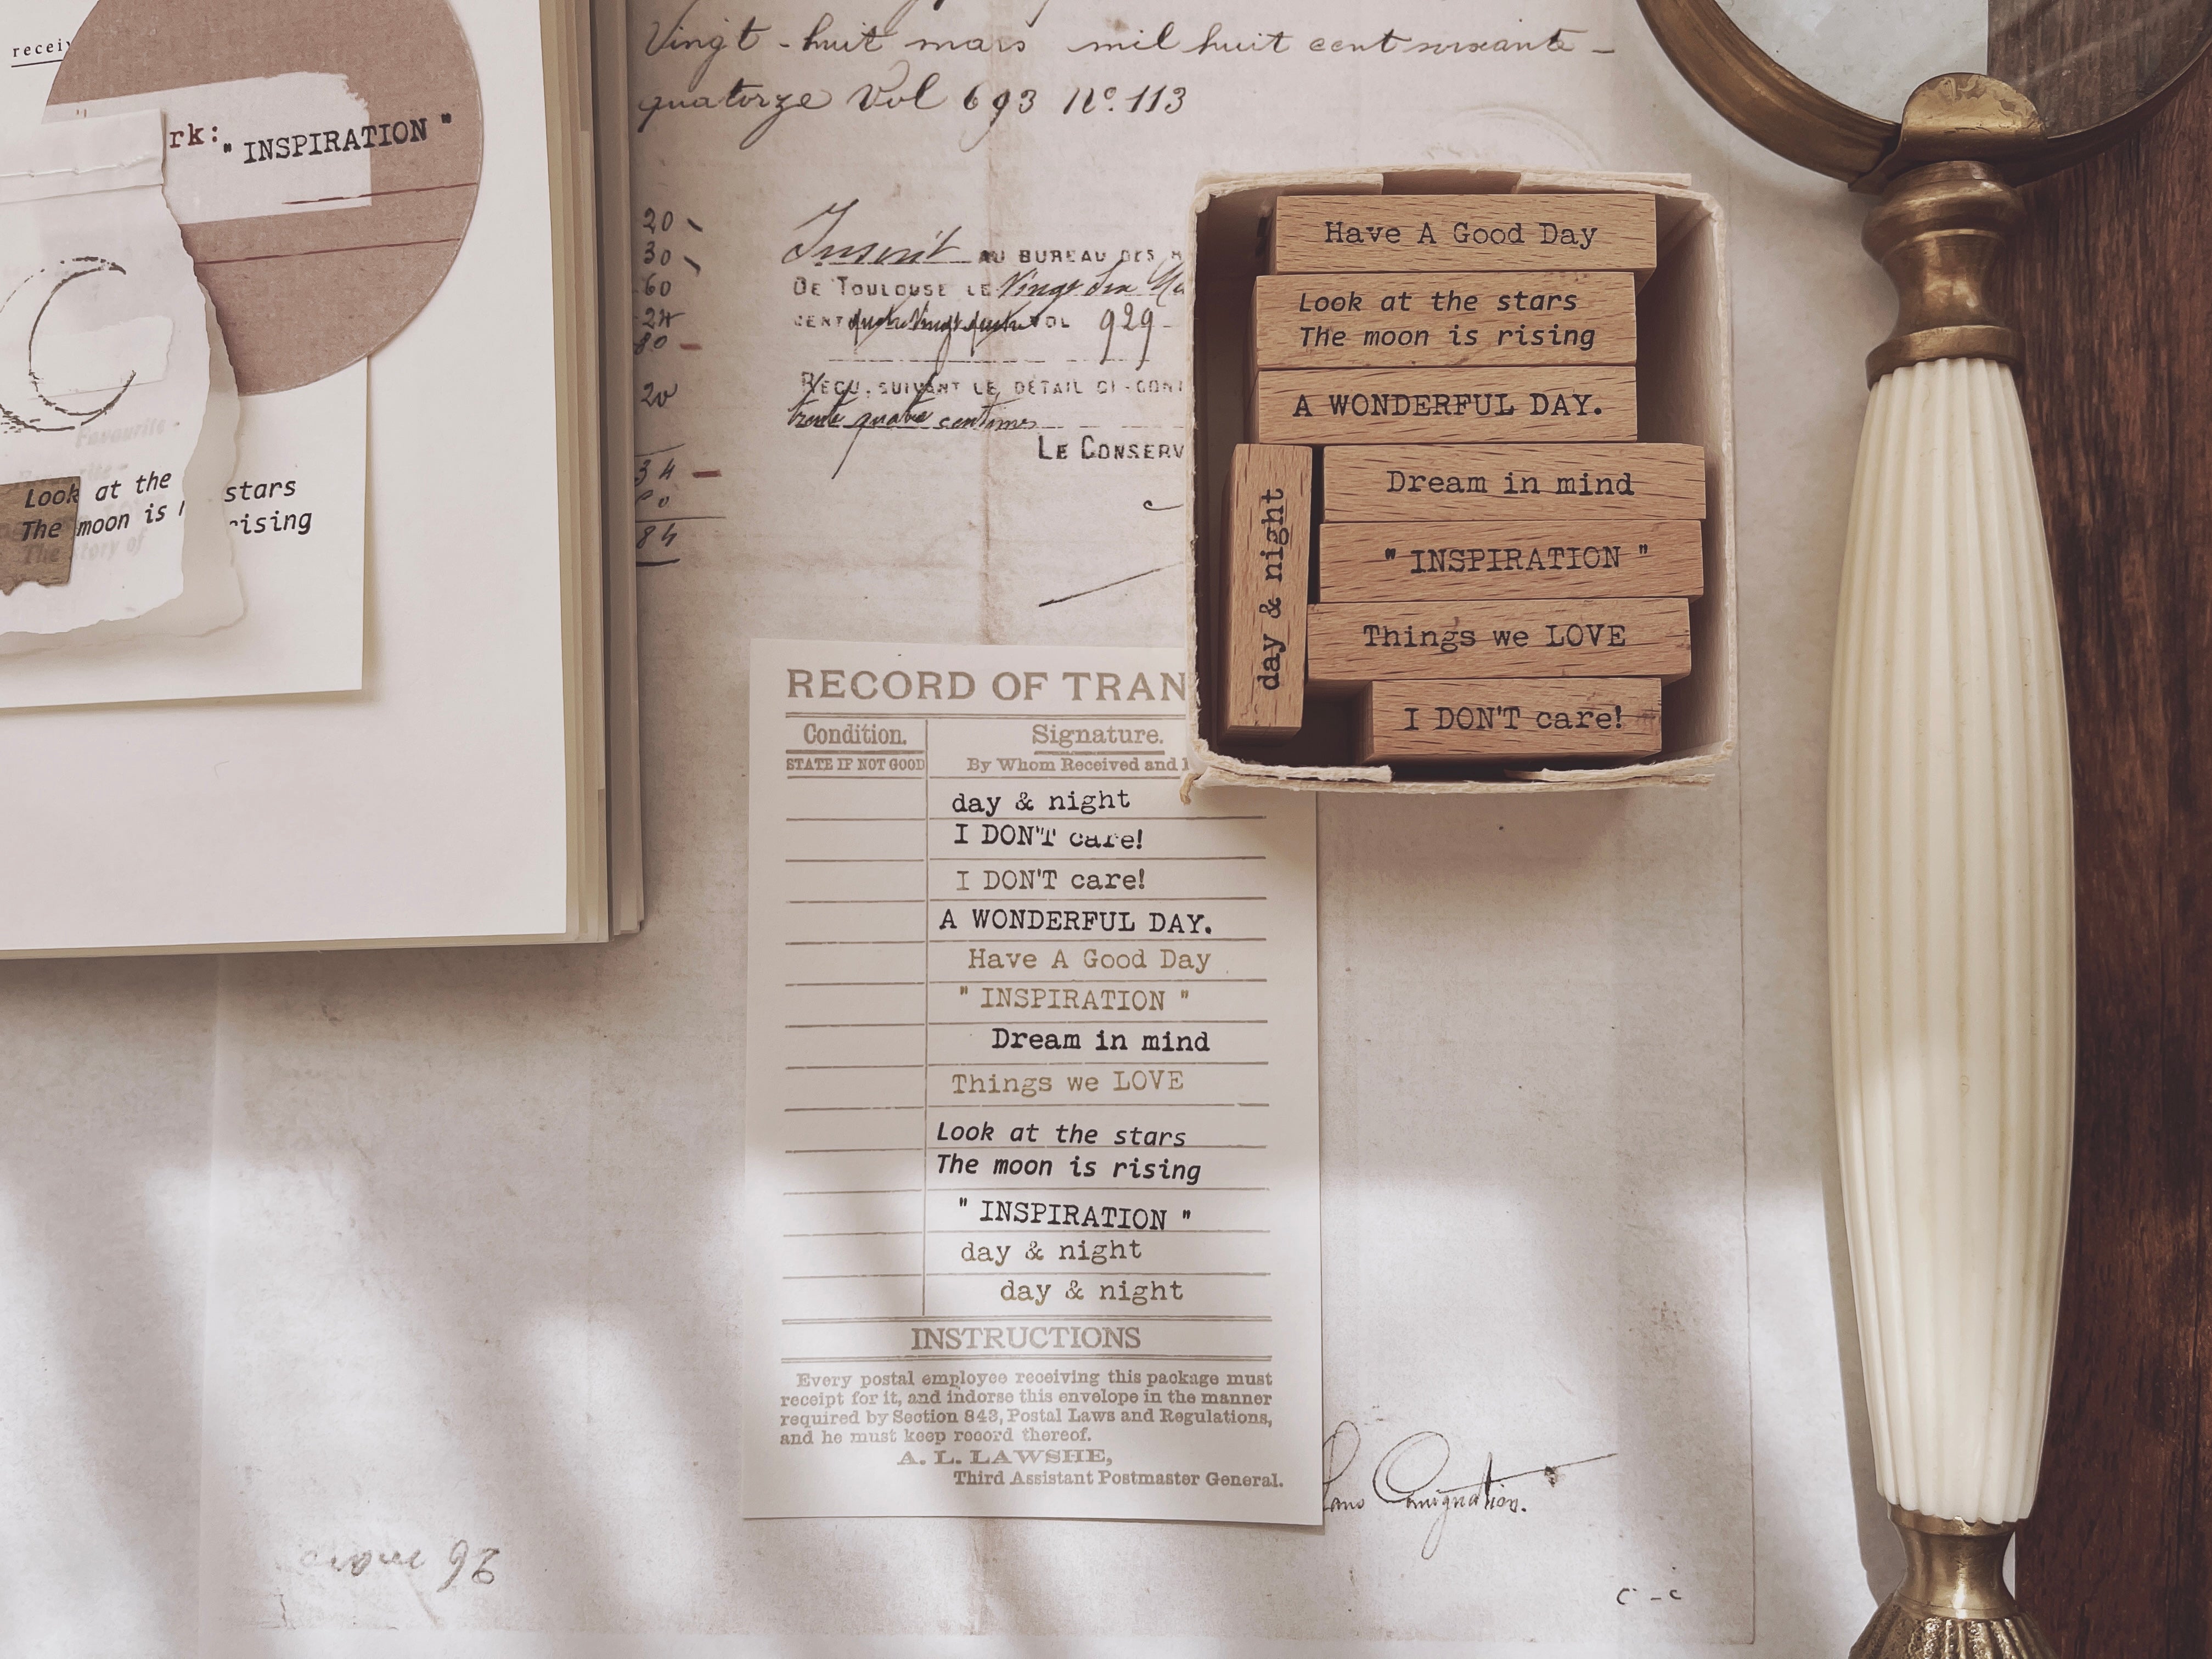 Vingt-huit mars mil huit cent soixante-
quatorze Vol 693 No. 113
rk: " INSPIRATION "
Look at the stars
The moon is rising
The story of
Favourite
20
30
60
24
80
20
34
84
Inscrit AU BUREAU DES
DE TOULOUSE LE Vingt
CENT VOL 929
REÇU, SUIVANT LE DÉTAIL CI-CONT
trente quatre centimes
LE CONSERV
Have A Good Day
Look at the stars
The moon is rising
A WONDERFUL DAY.
Dream in mind
" INSPIRATION "
Things we LOVE
I DON'T care!
day & night
RECORD OF TRAN
Condition. Signature.
STATE IF NOT GOOD By Whom Received and
day & night
I DON'T care!
I DON'T care!
A WONDERFUL DAY.
Have A Good Day
" INSPIRATION "
Dream in mind
Things we LOVE
Look at the stars
The moon is rising
" INSPIRATION "
day & night
day & night
INSTRUCTIONS
Every postal employee receiving this package must
receipt for it, and indorse this envelope in the manner
required by Section 843, Postal Laws and Regulations,
and he must keep record thereof.
A. L. LAWSHE,
Third Assistant Postmaster General.
26 mars